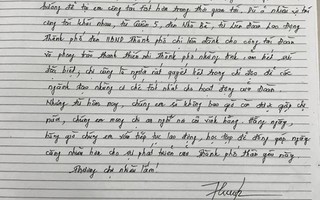 hướng để tụi em công tác tốt hơn trong thời gian tới. Dù ở nhiều vị trí
công tác khác nhau, từ Quận 5, đến Nhà Bè, từ Liên đoàn Lao động
Thành phố đến HĐND Thành phố chị luôn dành cho công tác Đoàn
và phong trào thanh thiếu nhi Thành phố những tình cảm, am hiểu, nói
đến biết, chị cũng là người rất quyết liệt trong chỉ đạo để các
ngành tạo những cơ chế tốt nhất cho hoạt động của Đoàn.
Những từ hôm nay, chúng em sẽ không bao giờ còn được gặp chị
nữa, chúng em mong chị an nghỉ nơi cõi vĩnh hằng. Hàng ngày,
hàng giờ chúng em vẫn tiếp tục lao động, học tập để đóng góp ngày
càng nhiều hơn cho sự phát triển của Thành phố thân yêu này.
Thương chị nhiều lắm!